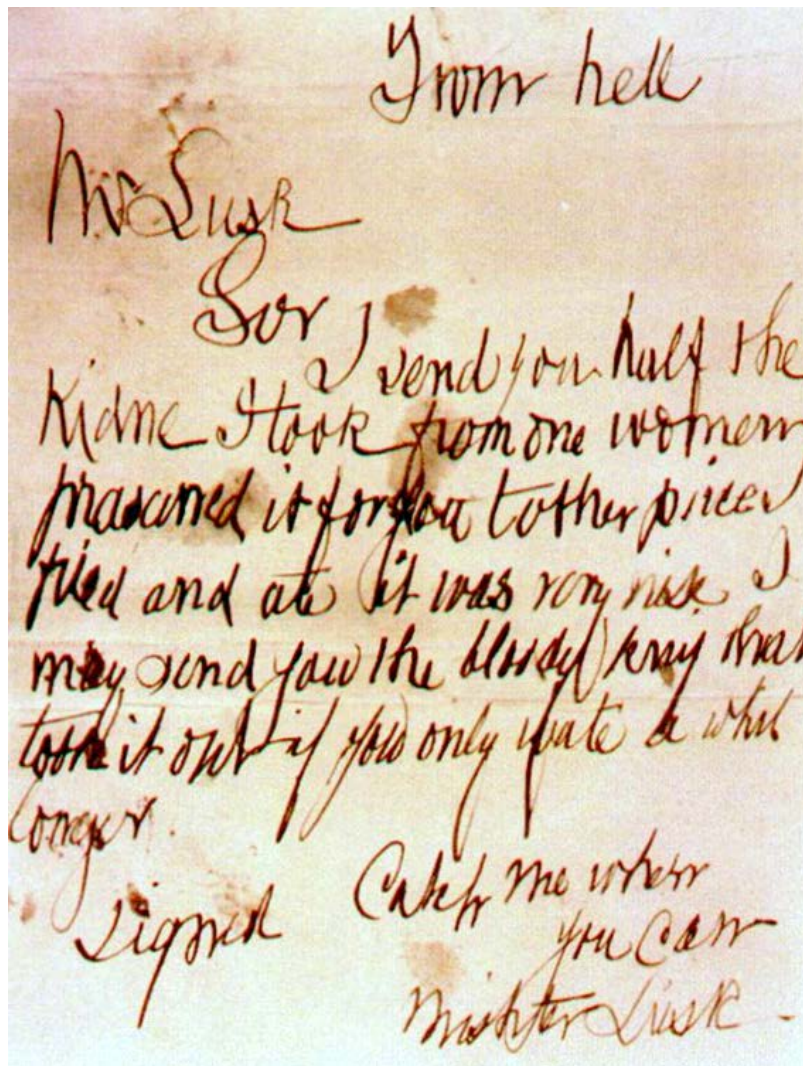 From hell
Mr Lusk
Sor
I send you half the
Kidne I took from one women
prasarved it for you tother piece I
fried and ate it was very nise I
may send you the bloody knif that
took it out if you only wate a whil
longer.
signed Catch me when
you Can
Mishter Lusk -